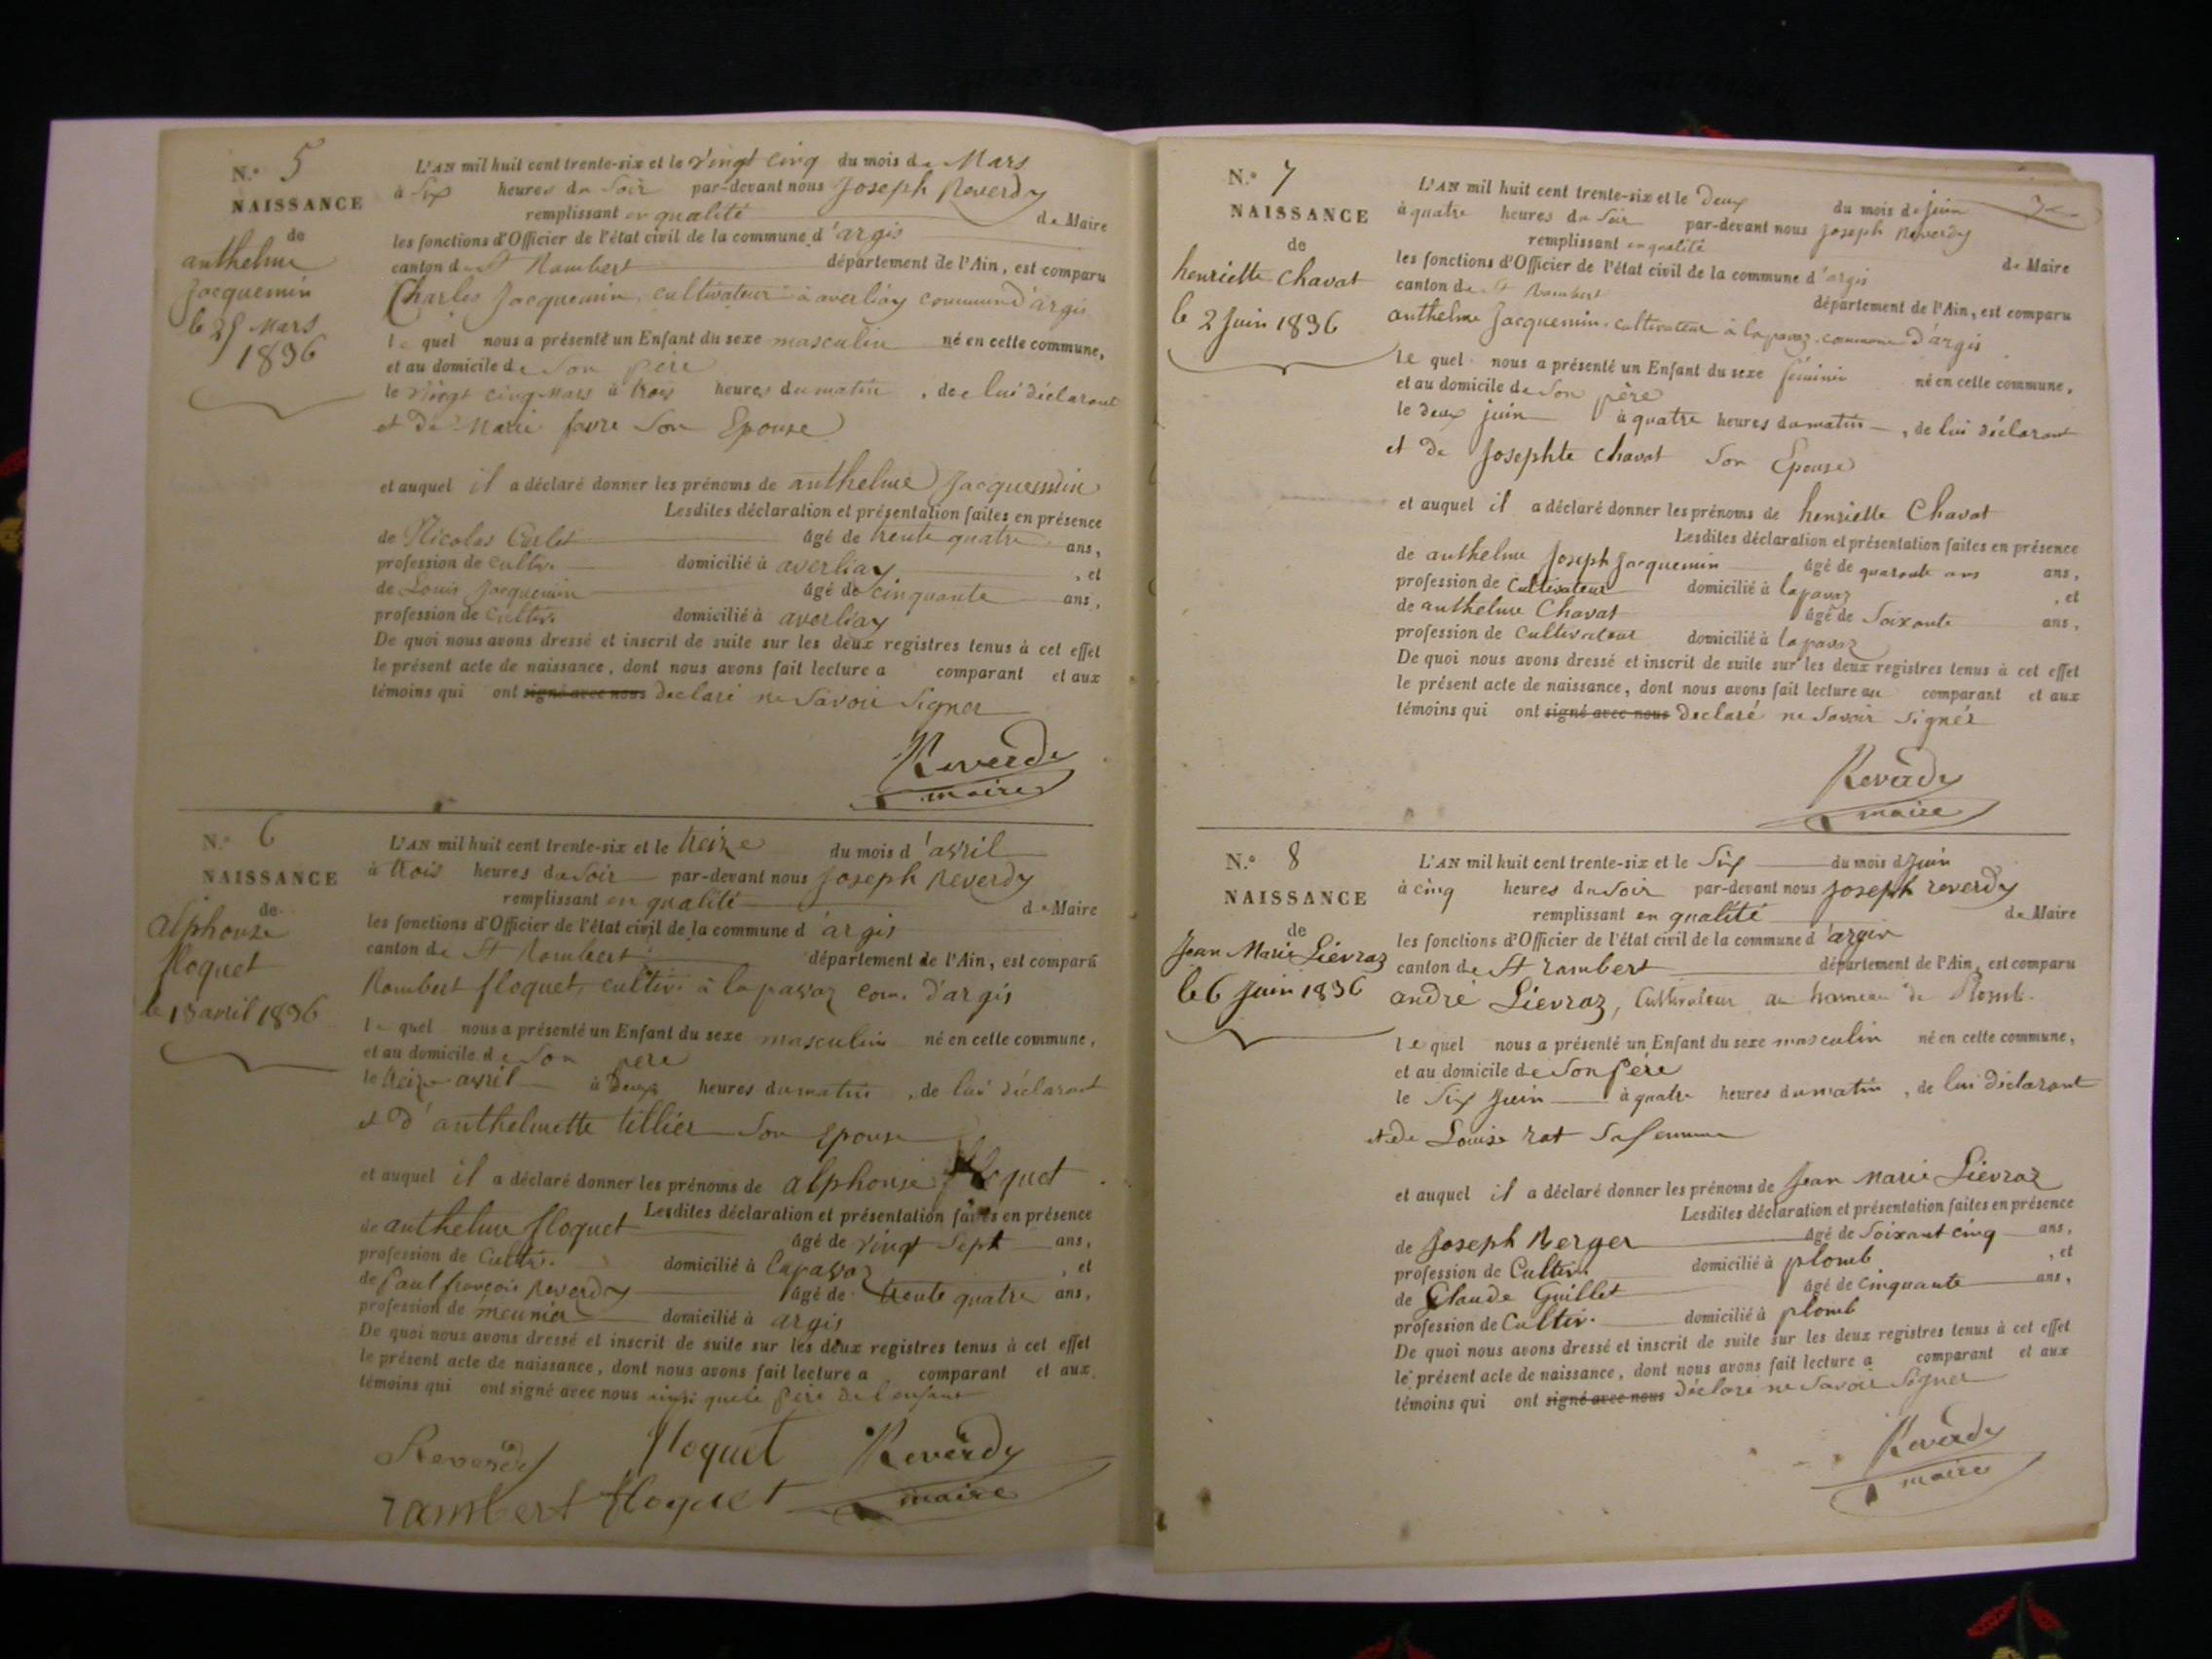 N.° 5
NAISSANCE
de
anthelme
Jacquemin
le 25 Mars
1836
L'AN mil huit cent trente-six et le vingt cinq du mois de Mars
à Six heures du Soir par-devant nous Joseph Reverdy
remplissant en qualité de Maire
les fonctions d'Officier de l'état civil de la commune d'argis
canton de St Rambert département de l'Ain, est comparu
Charles Jacquemin, cultivateur à averliay commune d'argis
le quel nous a présenté un Enfant du sexe masculin né en cette commune,
et au domicile de Son père
le vingt cinq Mars à trois heures du matin, de lui déclarant
et de Marie favre Son Epouse
et auquel il a déclaré donner les prénoms de anthelme Jacquemin
Lesdites déclaration et présentation faites en présence
de Nicolas Carlet âgé de trente quatre ans,
profession de cultiv. domicilié à averliay, et
de Louis Jacquemin âgé de cinquante ans,
profession de cultiv. domicilié à averliay
De quoi nous avons dressé et inscrit de suite sur les deux registres tenus à cet effet
le présent acte de naissance, dont nous avons fait lecture a comparant et aux
témoins qui ont signé avec nous declaré ne Savoir Signer
Reverdy
maire
N.° 6
NAISSANCE
de
alphonse
floquet
le 13 avril 1836
L'AN mil huit cent trente-six et le treize du mois d'avril
à trois heures du Soir par-devant nous Joseph Reverdy
remplissant en qualité de Maire
les fonctions d'Officier de l'état civil de la commune d'argis
canton de St Rambert département de l'Ain, est comparu
Rambert floquet, cultiv. à lapavaz com. d'argis
le quel nous a présenté un Enfant du sexe masculin né en cette commune,
et au domicile de Son père
le treize avril à Deux heures du matin, de lui déclarant
et d'anthelmette tillier Son Epouse
et auquel il a déclaré donner les prénoms de alphonse floquet
Lesdites déclaration et présentation faites en présence
de anthelme floquet âgé de vingt Sept ans,
profession de Cultiv. domicilié à lapavaz, et
de Paul françois Reverdy âgé de trente quatre ans,
profession de meunier domicilié à argis
De quoi nous avons dressé et inscrit de suite sur les deux registres tenus à cet effet
le présent acte de naissance, dont nous avons fait lecture a comparant et aux
témoins qui ont signé avec nous ainsi que le père de l'enfant
Reverdy floquet Reverdy
rambert floquet maire
N.° 7
NAISSANCE
de
henriette Chavat
le 2 Juin 1836
L'AN mil huit cent trente-six et le Deux du mois de juin
à quatre heures du Soir par-devant nous Joseph Reverdy
remplissant en qualité de Maire
les fonctions d'Officier de l'état civil de la commune d'argis
canton de St Rambert département de l'Ain, est comparu
anthelme Jacquemin, cultivateur à lapavaz commune d'argis
le quel nous a présenté un Enfant du sexe féminin né en cette commune,
et au domicile de Son père
le deux juin à quatre heures du matin, de lui déclarant
et de Josephte Chavat Son Epouse
et auquel il a déclaré donner les prénoms de henriette Chavat
Lesdites déclaration et présentation faites en présence
de anthelme Joseph Jacquemin âgé de quarante ans ans,
profession de Cultivateur domicilié à lapavaz, et
de anthelme Chavat âgé de Soixante ans,
profession de Cultivateur domicilié à lapavaz
De quoi nous avons dressé et inscrit de suite sur les deux registres tenus à cet effet
le présent acte de naissance, dont nous avons fait lecture au comparant et aux
témoins qui ont signé avec nous Declaré ne Savoir Signer
Reverdy
maire
N.° 8
NAISSANCE
de
Jean Marie Lievraz
le 6 Juin 1836
L'AN mil huit cent trente-six et le Six du mois de Juin
à cinq heures du Soir par-devant nous Joseph reverdy
remplissant en qualité de Maire
les fonctions d'Officier de l'état civil de la commune d'argis
canton de St rambert département de l'Ain, est comparu
andré Lievraz, Cultivateur au hameau de Plomb.
le quel nous a présenté un Enfant du sexe masculin né en cette commune,
et au domicile de Son père
le Six Juin à quatre heures du matin, de lui déclarant
et de Louise rat Sa femme
et auquel il a déclaré donner les prénoms de Jean Marie Lievraz
Lesdites déclaration et présentation faites en présence
de Joseph Berger âgé de Soixant cinq ans,
profession de Cultiv. domicilié à plomb, et
de Claude Guillet âgé de Cinquante ans,
profession de Cultiv. domicilié à plomb
De quoi nous avons dressé et inscrit de suite sur les deux registres tenus à cet effet
le présent acte de naissance, dont nous avons fait lecture a comparant et aux
témoins qui ont signé avec nous déclaré ne Savoir Signer
Reverdy
maire